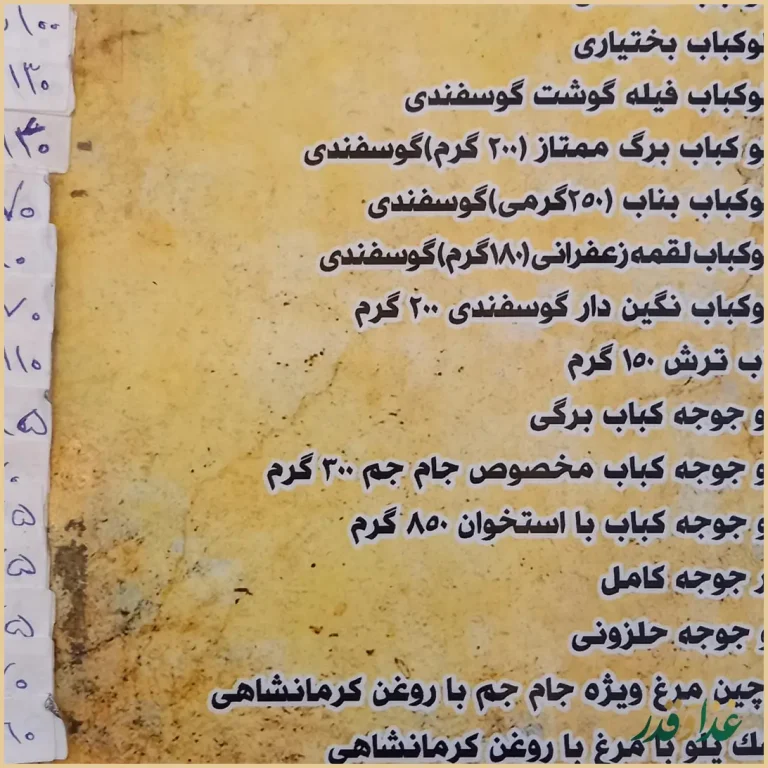 وکباب بختیاری
وکباب فیله گوشت گوسفندی
و کباب برگ ممتاز (۲۰۰ گرم)گوسفندی
وکباب بناب (۲۵۰گرمی)گوسفندی
وکباب لقمه زعفرانی(۱۸۰گرم)گوسفندی
وکباب نگین دار گوسفندی ۲۰۰ گرم
ب ترش ۱۵۰ گرم
و جوجه کباب برگی
و جوجه کباب مخصوص جام جم ۳۰۰ گرم
و جوجه کباب با استخوان ۸۵۰ گرم
ر جوجه کامل
و جوجه حلزونی
چین مرغ ویژه جام جم با روغن کرمانشاهی
پلو با مرغ با روغن کرمانشاهی
غذا قدر
۱۰۰
۱۳۰
۱۴۰
۷۵
۷۰
۱۱۰